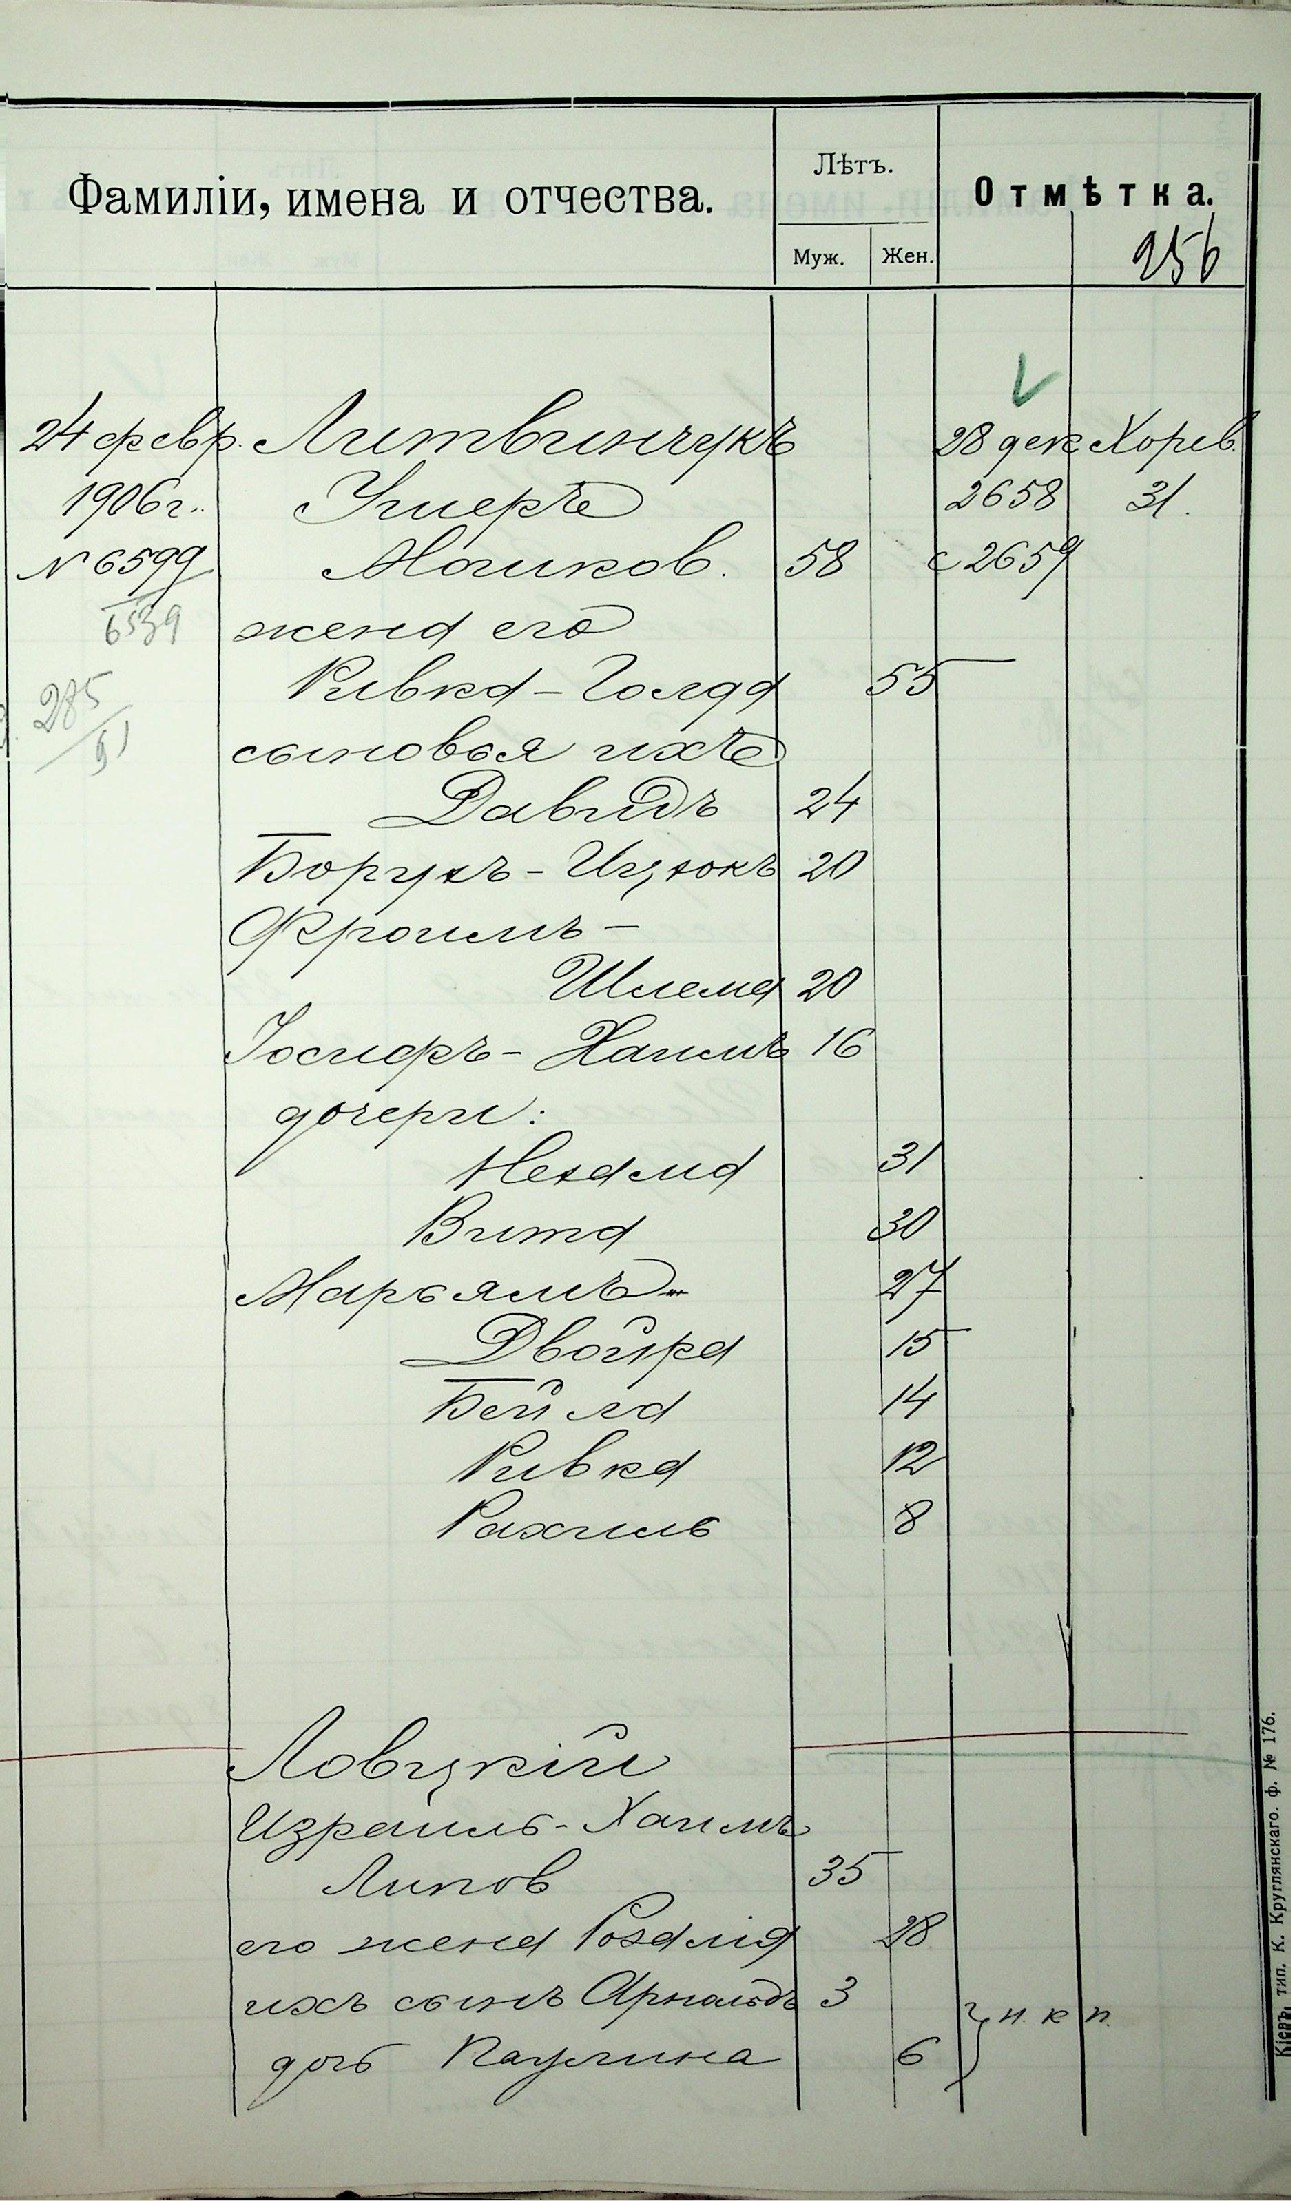 Фамиліи, имена и отчества.
Лѣтъ.
Отмѣтка.
Муж.
Жен.
256
24 февр. Литвинчукъ 28 дек Хорев.
1906г. Ушеръ 2658 31.
№ 6599 Мошков. 58 с 2659
6539 жена его
285 Ривка - Голда 55
91 сыновья ихъ
Давидъ 24
Борухъ - Ицхокъ 20
Фроимъ -
Шлема 20
Іосифъ - Хаимъ 16
дочери:
Нехама 31
Вита 30
Марьямъ 27
Двойра 15
Бейла 14
Ривка 12
Рахиль 8
Ловцкій
Израиль - Хаимъ
Липов 35
его жена Розалія 28
ихъ сынъ Арнольдъ 3
н. к п.
дочь Паулина 6
Кіевъ, тип. К. Круглянскаго. ф. № 176.